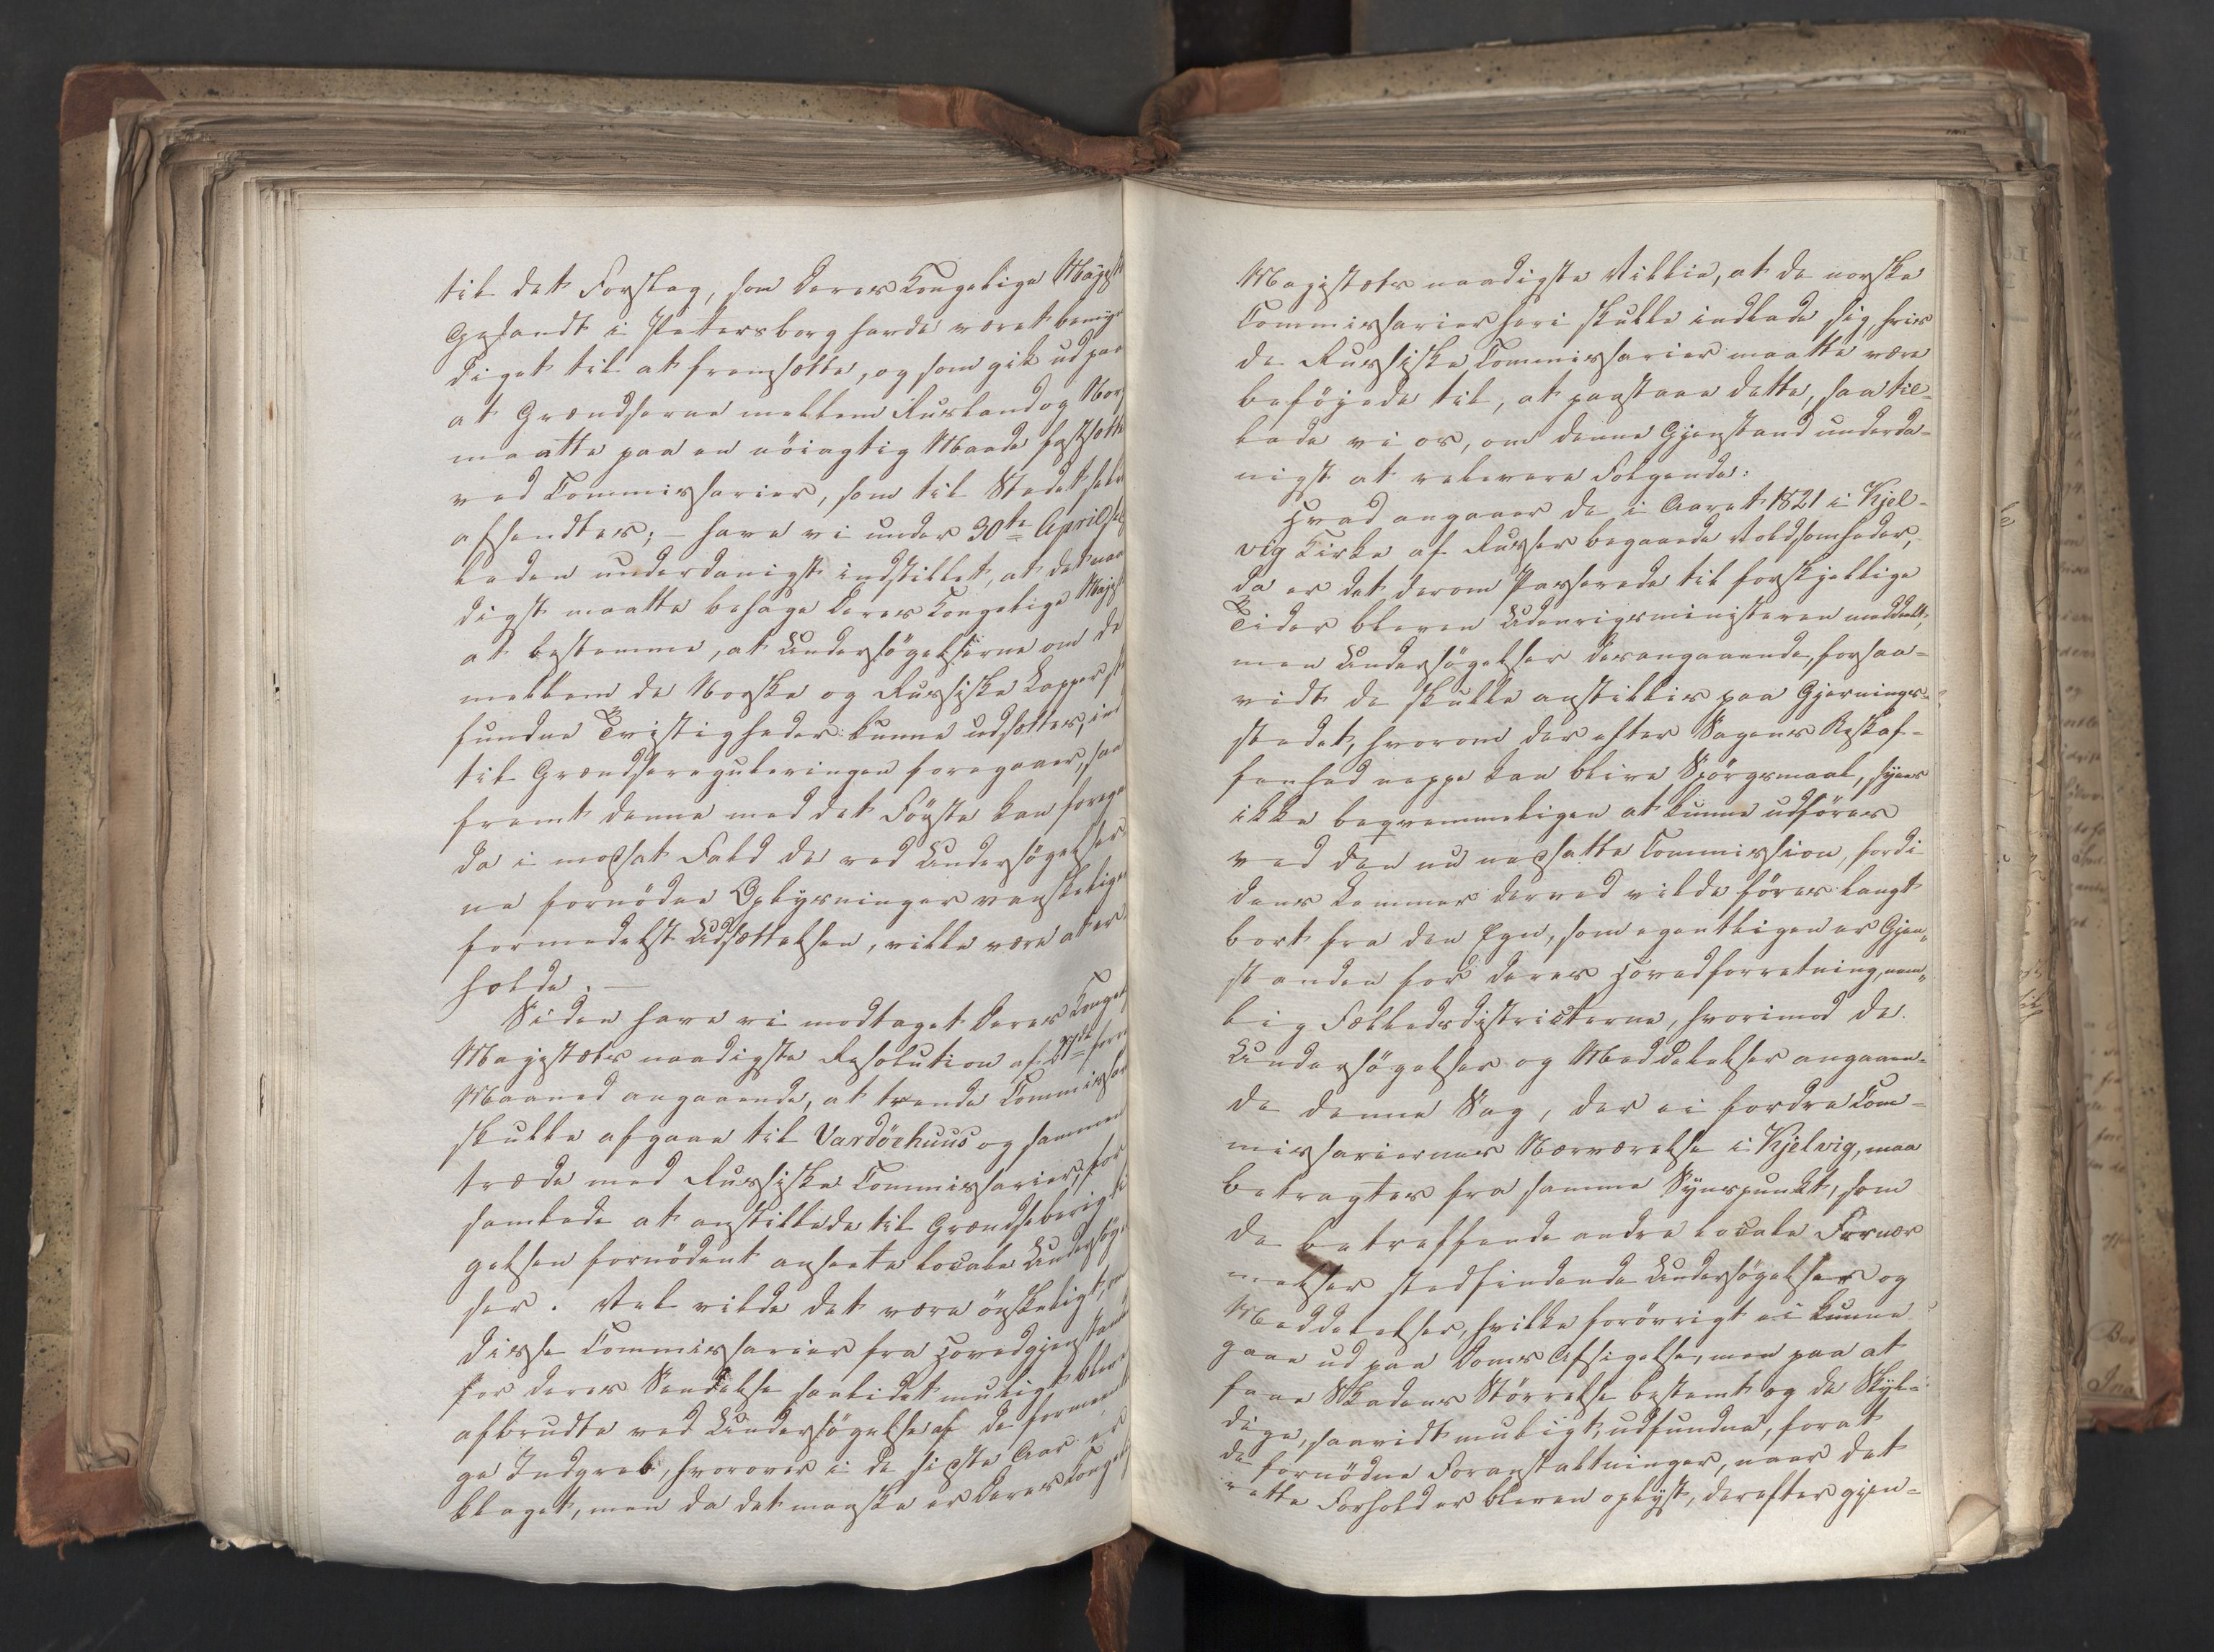 til det Forslag, som Deres Kongelige Majest
Gesandt i Petersborg havde været bemyn
diget til at fremsætte, og som gik ud paa
at Grændserne mellem Rusland og Nor
maatte paa en nöiagtig Maade fastsætte
ved Commissarier, som til Stedet selv
afsendtes; – have vi under 30te April sidst
leden underdanigst indstillet, at det naa
digst maatte behage Deres Kongelige Majest
at bestemme, at Undersögelserne om de
mellem de Norske og Russiske Lapper st
fundne Tvistigheder kunne udsættes, ind
til Grændsereguleringen foregaaer, saa
fremt denne med det Förste kan forega
da i modsat Fald de ved Undersögelser
ne fornödne Oplysninger vanskelige
formedelst Udsættelsen, ville være at er
holde. –
Siden have vi modtaget Deres Kongel
Majestæts naadigste Resolution af 27de forr
Maaned angaaende, at tvende Commissar
skulle afgaae til Vardöehuus og sammen
træde med Russiske Commissarier, for
samlede at anstillede til Grændseberig
gelsen fornödent anseete locale Undersög
ser. Vel vilde det være önskeligt, om
disse Commissarier fra Hovedgjenstand
for deres Sendelse saalidet muligt bleve
afbrudte ved Undersögelse af de formeent
ge Indgreb, hvorover i de sidste Aar er
klaget, men da det maaske er Deres Kongel
Majestæts naadigste Villie, at de norske
Commissarier heri skulle indlade sig, hvis
de Russiske Commissarier maatte være
beföjede til, at paastaae dette, saa til-
lade vi os, om denne Gjenstand underda-
nigst at relevere Følgende:
Hvad angaaer de i Aaret 1821 i Kjel-
vig Kirke af Russer begaaede Voldsomheder,
da er det derom Passerede til forskjellige
Tider bleven Udenrigsministeren meddeelt,
men Undersögelser desangaaende, forsaa-
vidt de skulle anstilles paa Gjernings-
stedet, hvorom der efter Sagens Beskaf-
fenhed neppe kan blive Spörgsmaal, synes
ikke beqvemmeligen at kunne udföres
ved den nu nedsatte Commission, fordi
dens Lemmer derved vilde föres langt
bort fra den Egn, som egentligen er Gjen-
standen for deres Hovedforretning, nem-
lig Fællesdistricterne, hvorimod de
Undersögelser og Meddelelser angaaen-
de denne Sag, der ei fordre Com-
missariernes Nærværelse i Kjelvig, maa
betragtes fra samme Synspunkt, som
de betreffende andre locale Fornær
melser stedfindende Undersögelser og
Meddelelser, hvilke forövrigt ei kunne
gaae ud paa Doms Afsigelse, men paa at
faae Skadens Störrelse bestemt og de Skyl-
dige, saavidt muligt, udfundne, forat
de fornödne Foranstaltninger, naar det
rette Forhold er bleven oplyst, derefter gjen-